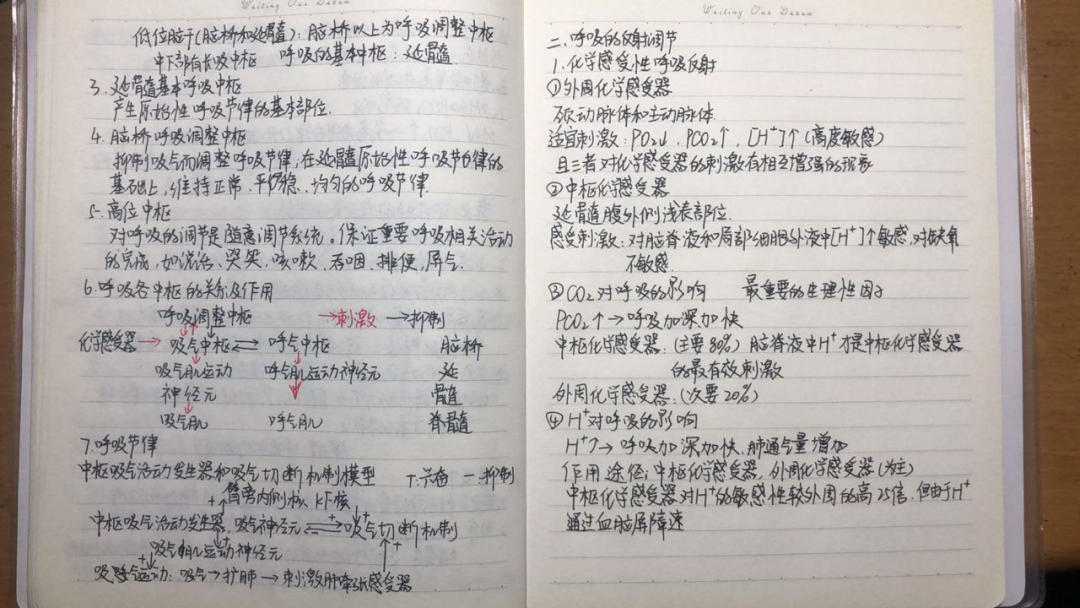 Writing Our Dream
低位脑干(脑桥和延髓): 脑桥以上为呼吸调整中枢
中下部有长吸中枢 呼吸的基本中枢: 延髓
3. 延髓基本呼吸中枢
产生原始性呼吸节律的基本部位.
4. 脑桥呼吸调整中枢
抑制吸气而调整呼吸节律, 在延髓原始性呼吸节律的
基础上, 维持正常、平稳、均匀的呼吸节律
5. 高位中枢
对呼吸的调节是随意调节系统。保证重要呼吸相关活动
的完成, 如说话、哭笑, 咳嗽、吞咽、排便、屏气.
6. 呼吸各中枢的关系及作用
呼吸调整中枢 →刺激 →抑制
化学感受器 → 吸气中枢 ⇄ 呼气中枢 脑桥
吸气肌运动 呼气肌运动神经元 延
神经元 髓
吸气肌 呼气肌 脊髓
7. 呼吸节律
中枢吸气活动发生器和吸气切断机制模型 +:兴奋 -:抑制
+ 臂旁内侧核 KF核
中枢吸气活动发生器 吸气神经元 ⇄ + 吸气切断机制
吸气肌运动神经元 +
+ 吸气→扩肺→刺激肺牵张感受器
Writing Our Dream
二. 呼吸的反射调节
1. 化学感受性呼吸反射
①外周化学感受器
颈动脉体和主动脉体.
适宜刺激: PO₂↓. PCO₂↑. [H⁺]↑(高度敏感)
且三者对化学感受器的刺激有相互增强的现象
②中枢化学感受器
延髓腹外侧浅表部位.
感受刺激: 对脑脊液和局部细胞外液中[H⁺]↑敏感, 对缺氧
不敏感.
③CO₂对呼吸的影响 最重要的生理性因子
PCO₂↑→呼吸加深加快
中枢化学感受器: (主要80%) 脑脊液中H⁺才是中枢化学感受器
的最有效刺激
外周化学感受器: (次要20%)
④H⁺对呼吸的影响
H⁺↑→呼吸加深加快. 肺通气量增加
作用途径: 中枢化学感受器, 外周化学感受器(为主)
中枢化学感受器对H⁺的敏感性较外周的高25倍, 但由于H⁺
通过血脑屏障速